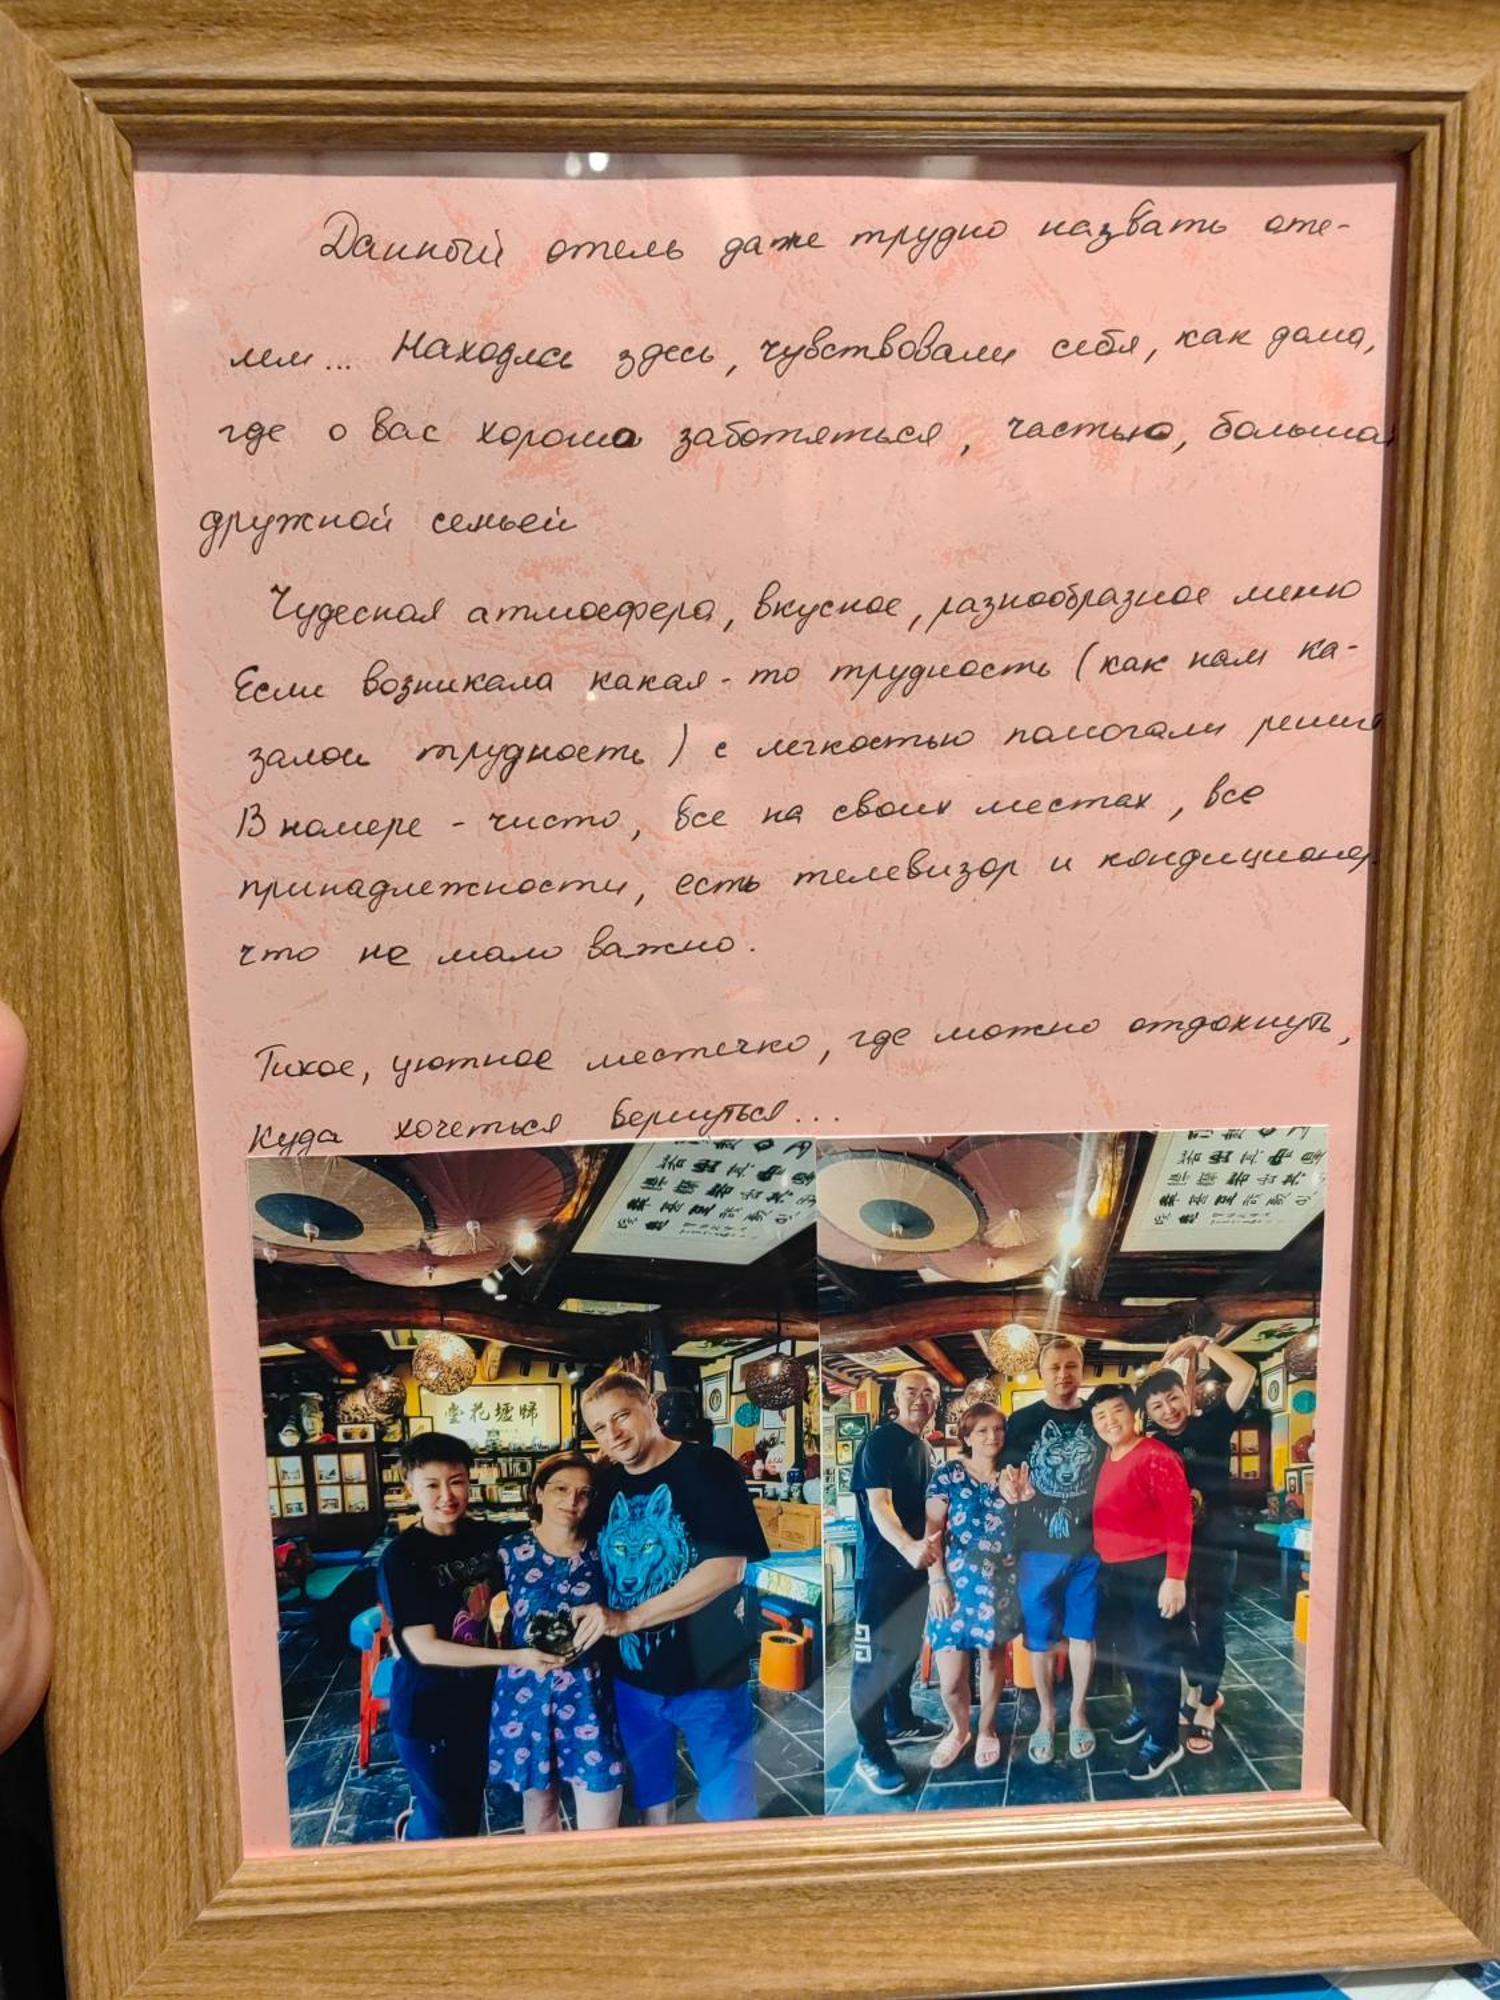 Данный отель даже трудно назвать оте-
лем... Находясь здесь, чувствовали себя, как дома,
где о вас хорошо заботяться, частью, большой
дружной семьей
Чудесная атмосфера, вкусное, разнообразное меню
Если возникала какая-то трудность (как нам ка-
залои трудность) с легкостью помогали решить
В номере - чисто, все на своих местах, все
принадлежности, есть телевизор и кондиционер
что не мало важно.
Тихое, уютное местечко, где можно отдохнуть,
куда хочеться вернуться...
堂花壚歸